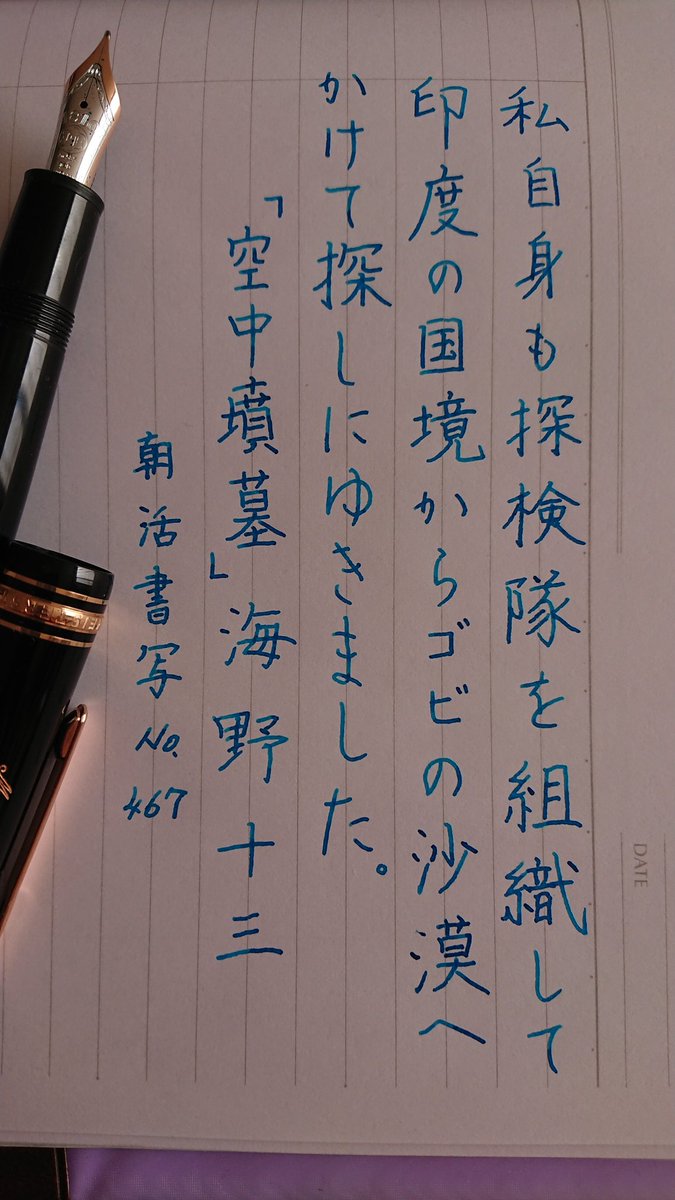 私自身も探検隊を組織して
印度の国境からゴビの沙漠へ
かけて探しにゆきました。
「空中墳墓」海野十三
朝活書写No.467
DATE